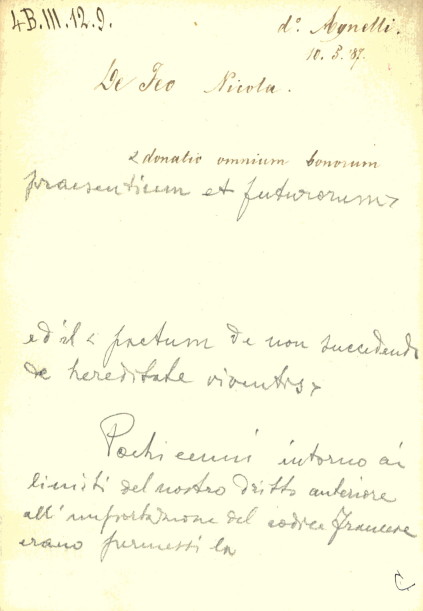 4B.III.12.9.
d.º Agnelli.
10.3.'87.
De Feo Nicola.
< donatio omnium bonorum
praesentium et futurorum >
ed il < pactum de non succedendo
de hereditate viventis >
Pochi cenni intorno ai
limiti del nostro dritto anteriore
all'importazione del codice francese
erano permessi la
C